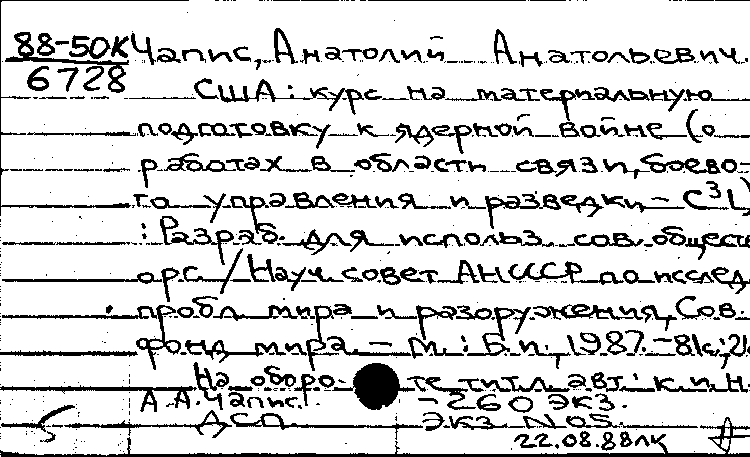 88-50К Чапис, Анатолий Анатольевич.
6728
США: курс на материальную
подготовку к ядерной войне (о
работах в области связи, боево-
го управления и разведки, - C³I)
: Разраб. для использ. сов. обществ
орг. / Науч. совет АН СССР по исслед
пробл. мира и разоружения, Сов.
фонд мира. - М.: Б.и., 1987. - 81с.;
На оборо- те тит.л. авт.: к.и.н.
А.А.Чапис. - 260 экз.
5 ДСП. Экз. N 05.
22.08.88лк